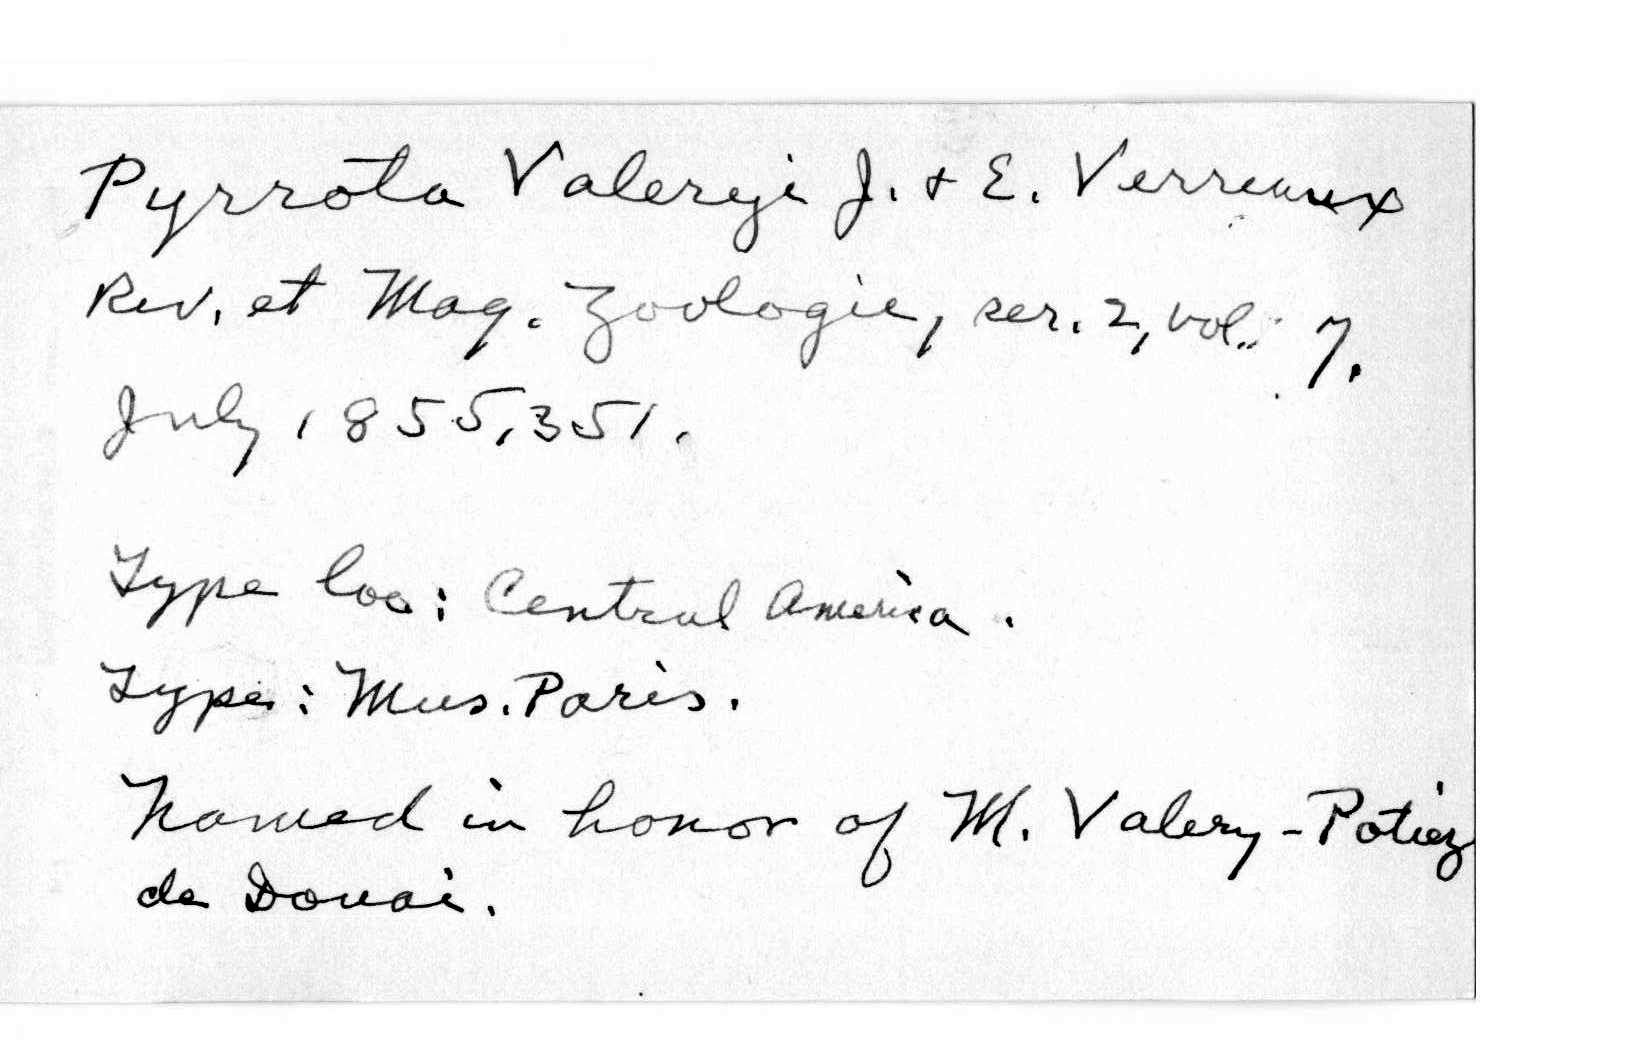 Pyrrota Valeryi J. + E. Verreaux
Rev. et Mag. Zoologie, ser. 2, vol. 7.
July 1855, 351.
Type loc: Central America.
Type: Mus. Paris.
Named in honor of M. Valery-Potiez
de Douai.